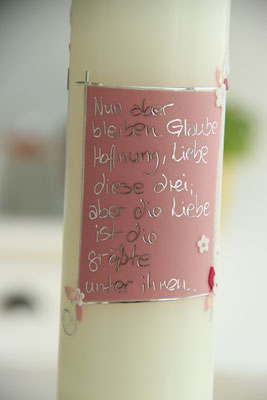 Nun aber
bleiben Glaube
Hoffnung, Liebe
diese drei;
aber die Liebe
ist die
größte
unter ihnen..